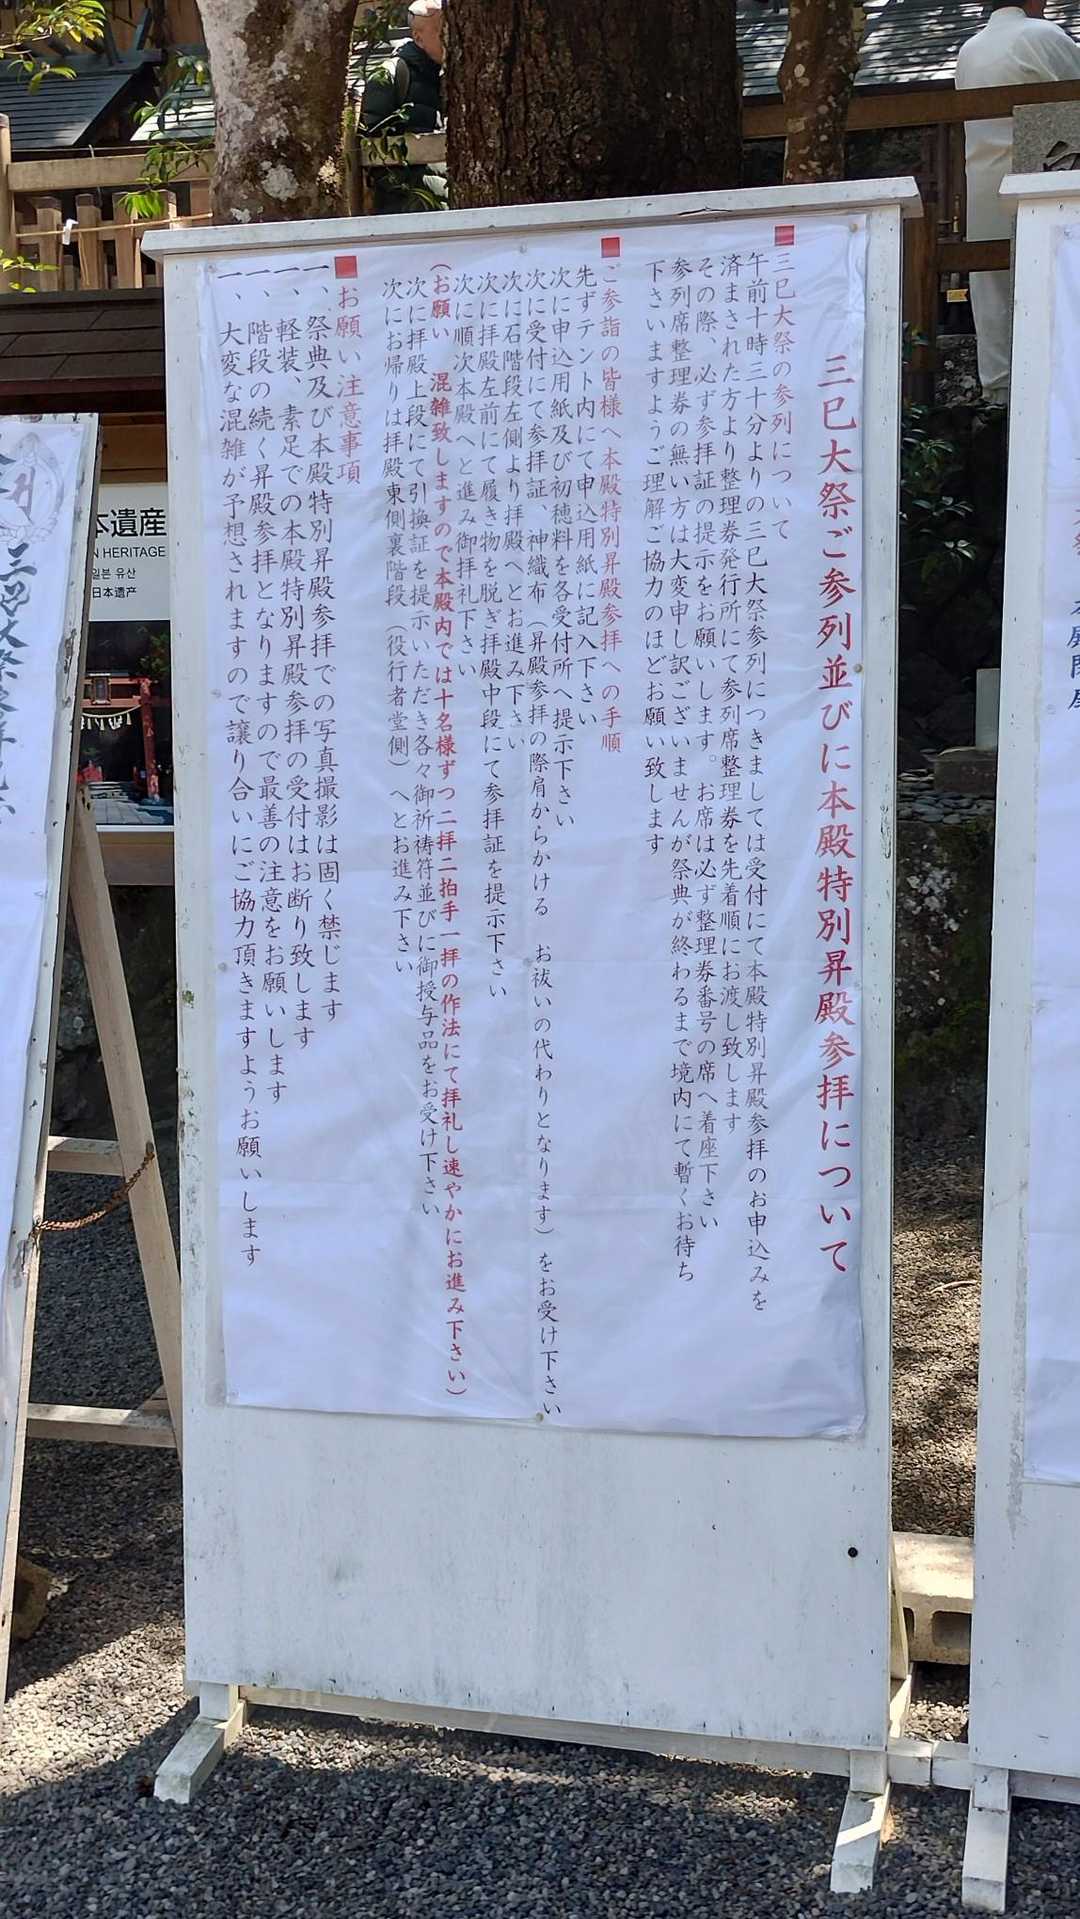 三巳大祭ご参列並びに本殿特別昇殿参拝について
■三巳大祭の参列について
午前十時三十分よりの三巳大祭参列につきましては受付にて本殿特別昇殿参拝のお申込みを
済まされた方より整理券発行所にて参列席整理券を先着順にお渡し致します
その際、必ず参拝証の提示をお願いします。お席は必ず整理券番号の席へ着座下さい
参列席整理券の無い方は大変申し訳ございませんが祭典が終わるまで境内にて暫くお待ち
下さいますようご理解ご協力のほどお願い致します
■ご参詣の皆様へ本殿特別昇殿参拝への手順
先ずテント内にて申込用紙に記入下さい
次に申込用紙及び初穂料を各受付所へ提示下さい
次に受付にて参拝証、神織布（昇殿参拝の際肩からかける　お祓いの代わりとなります）をお受け下さい
次に石階段左側より拝殿へとお進み下さい
次に拝殿左前にて履き物を脱ぎ拝殿中段にて参拝証を提示下さい
次に順次本殿へと進み御拝礼下さい
（お願い　混雑致しますので本殿内では十名様ずつ二拝二拍手一拝の作法にて拝礼し速やかにお進み下さい）
次に拝殿上段にて引換証を提示いただき各々御祈祷符並びに御授与品をお受け下さい
次にお帰りは拝殿東側裏階段（役行者堂側）へとお進み下さい
■お願い注意事項
一、祭典及び本殿特別昇殿参拝での写真撮影は固く禁じます
一、軽装、素足での本殿特別昇殿参拝の受付はお断り致します
一、階段の続く昇殿参拝となりますので最善の注意をお願いします
一、大変な混雑が予想されますので譲り合いにご協力頂きますようお願いします
本遺産
N HERITAGE
일본 유산
日本遗产